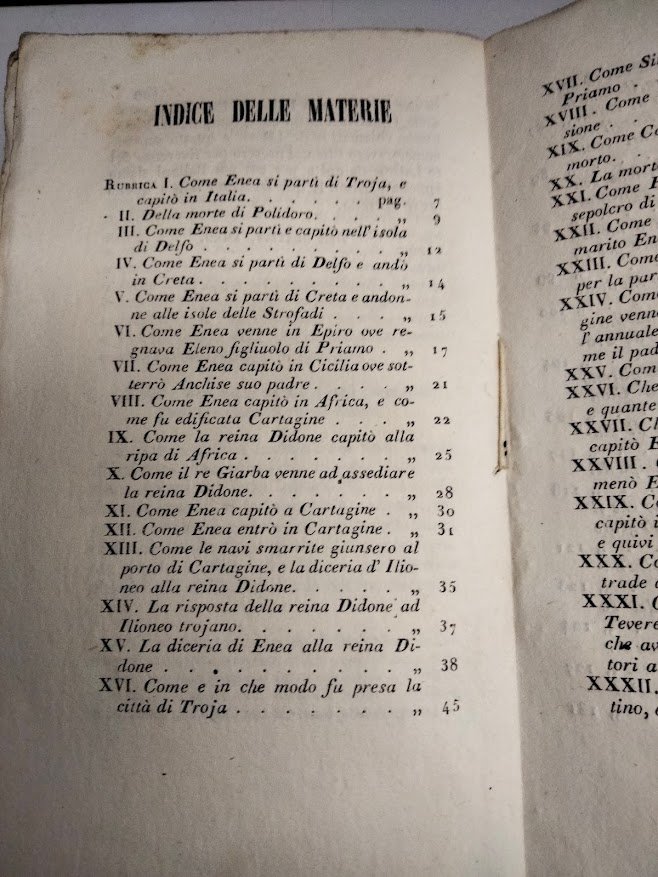 INDICE DELLE MATERIE
RUBRICA I. Come Enea si partì di Troja, e
capitò in Italia. . . . . . pag. 7
II. Della morte di Polidoro. . . . „ 9
III. Come Enea si partì e capitò nell'isola
di Delfo . . . . . . . . . „ 12
IV. Come Enea si partì di Delfo e andò
in Creta . . . . . . . . . „ 14
V. Come Enea si partì di Creta e andon-
ne alle isole delle Strofadi . . . „ 15
VI. Come Enea venne in Epiro ove re-
gnava Eleno figliuolo di Priamo . „ 17
VII. Come Enea capitò in Cicilia ove sot-
terrò Anchise suo padre . . . . „ 21
VIII. Come Enea capitò in Africa, e co-
me fu edificata Cartagine . . . „ 22
IX. Come la reina Didone capitò alla
ripa di Africa . . . . . . . „ 25
X. Come il re Giarba venne ad assediare
la reina Didone. . . . . . . „ 28
XI. Come Enea capitò a Cartagine . „ 30
XII. Come Enea entrò in Cartagine . „ 31
XIII. Come le navi smarrite giunsero al
porto di Cartagine, e la diceria d' Ilio-
neo alla reina Didone. . . . . „ 35
XIV. La risposta della reina Didone ad
Ilioneo trojano. . . . . . . „ 37
XV. La diceria di Enea alla reina Di-
done . . . . . . . . . . „ 38
XVI. Come e in che modo fu presa la
città di Troja . . . . . . . „ 45
XVII. Come
Priamo .
XVIII. Come
sione .
XIX. Come
morto.
XX. La
XXI. Come
sepolcro di
XXII. Come
marito
XXIII. Come
per la
XXIV. Come
gine venne
l' annuale
me il
XXV.
XXVI.
e quante
XXVII.
capitò
XXVIII.
menò
XXIX.
capitò
e quivi
XXX.
XXXI.
che
tori
XXXII.